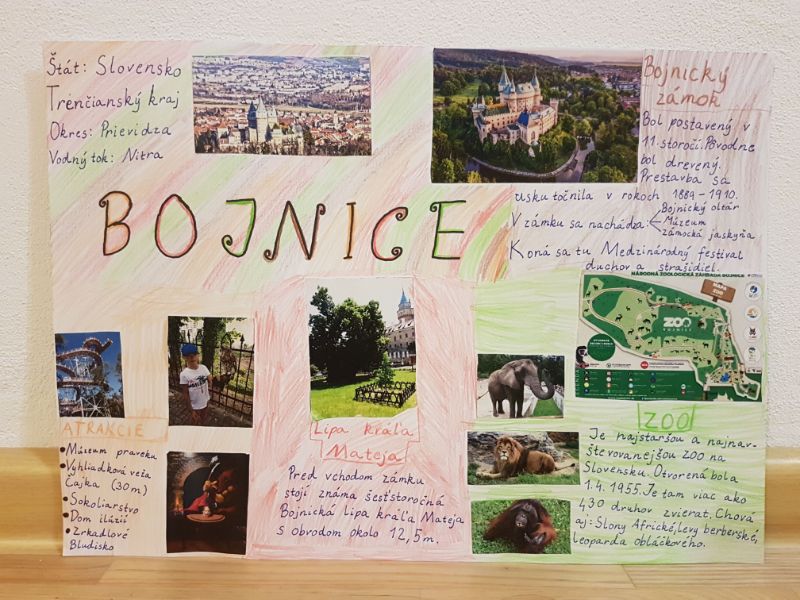 Štát: Slovensko
Trenčianský kraj
Okres: Prievidza
Vodný tok: Nitra
Bojnický
zámok
Bol postavený v
11. storočí. Pôvodne
bol drevený.
Prestavba sa
uskutočnila v rokoch 1889-1910.
V zámku sa nachádza:
Bojnický oltár
Múzeum
zámocká jaskyňa
Koná sa tu Medzinárodný festival
duchov a strašidiel.
BOJNICE
NÁRODNÁ ZOOLOGICKÁ ZÁHRADA BOJNICE
MAPA
ZOO
ZOO
BOJNICE
ATRAKCIE
Múzeum praveku
Vyhliadková veža
Čajka (30m)
Sokoliarstvo
Dom ilúzií
Zrkadlové
Bludisko
Lipa kráľa
Mateja
Pred vchodom zámku
stojí známa šesťstoročná
Bojnická lipa kráľa Mateja
s obvodom okolo 12,5m.
ZOO
Je najstaršou a najnav-
števovanejšou ZOO na
Slovensku. Otvorená bola
1.4.1955. Je tam viac ako
430 druhov zvierat. Chová
aj: Slony Africké, levy berberské,
leoparda obláčkového.